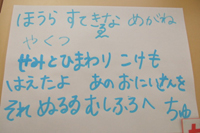 ほうら すてきな めがね
ゑ
やくつ
せみとひまわり こけも
はえたよ あのおにいさんを
それ ぬるぬるむしぶろへ ちゅ